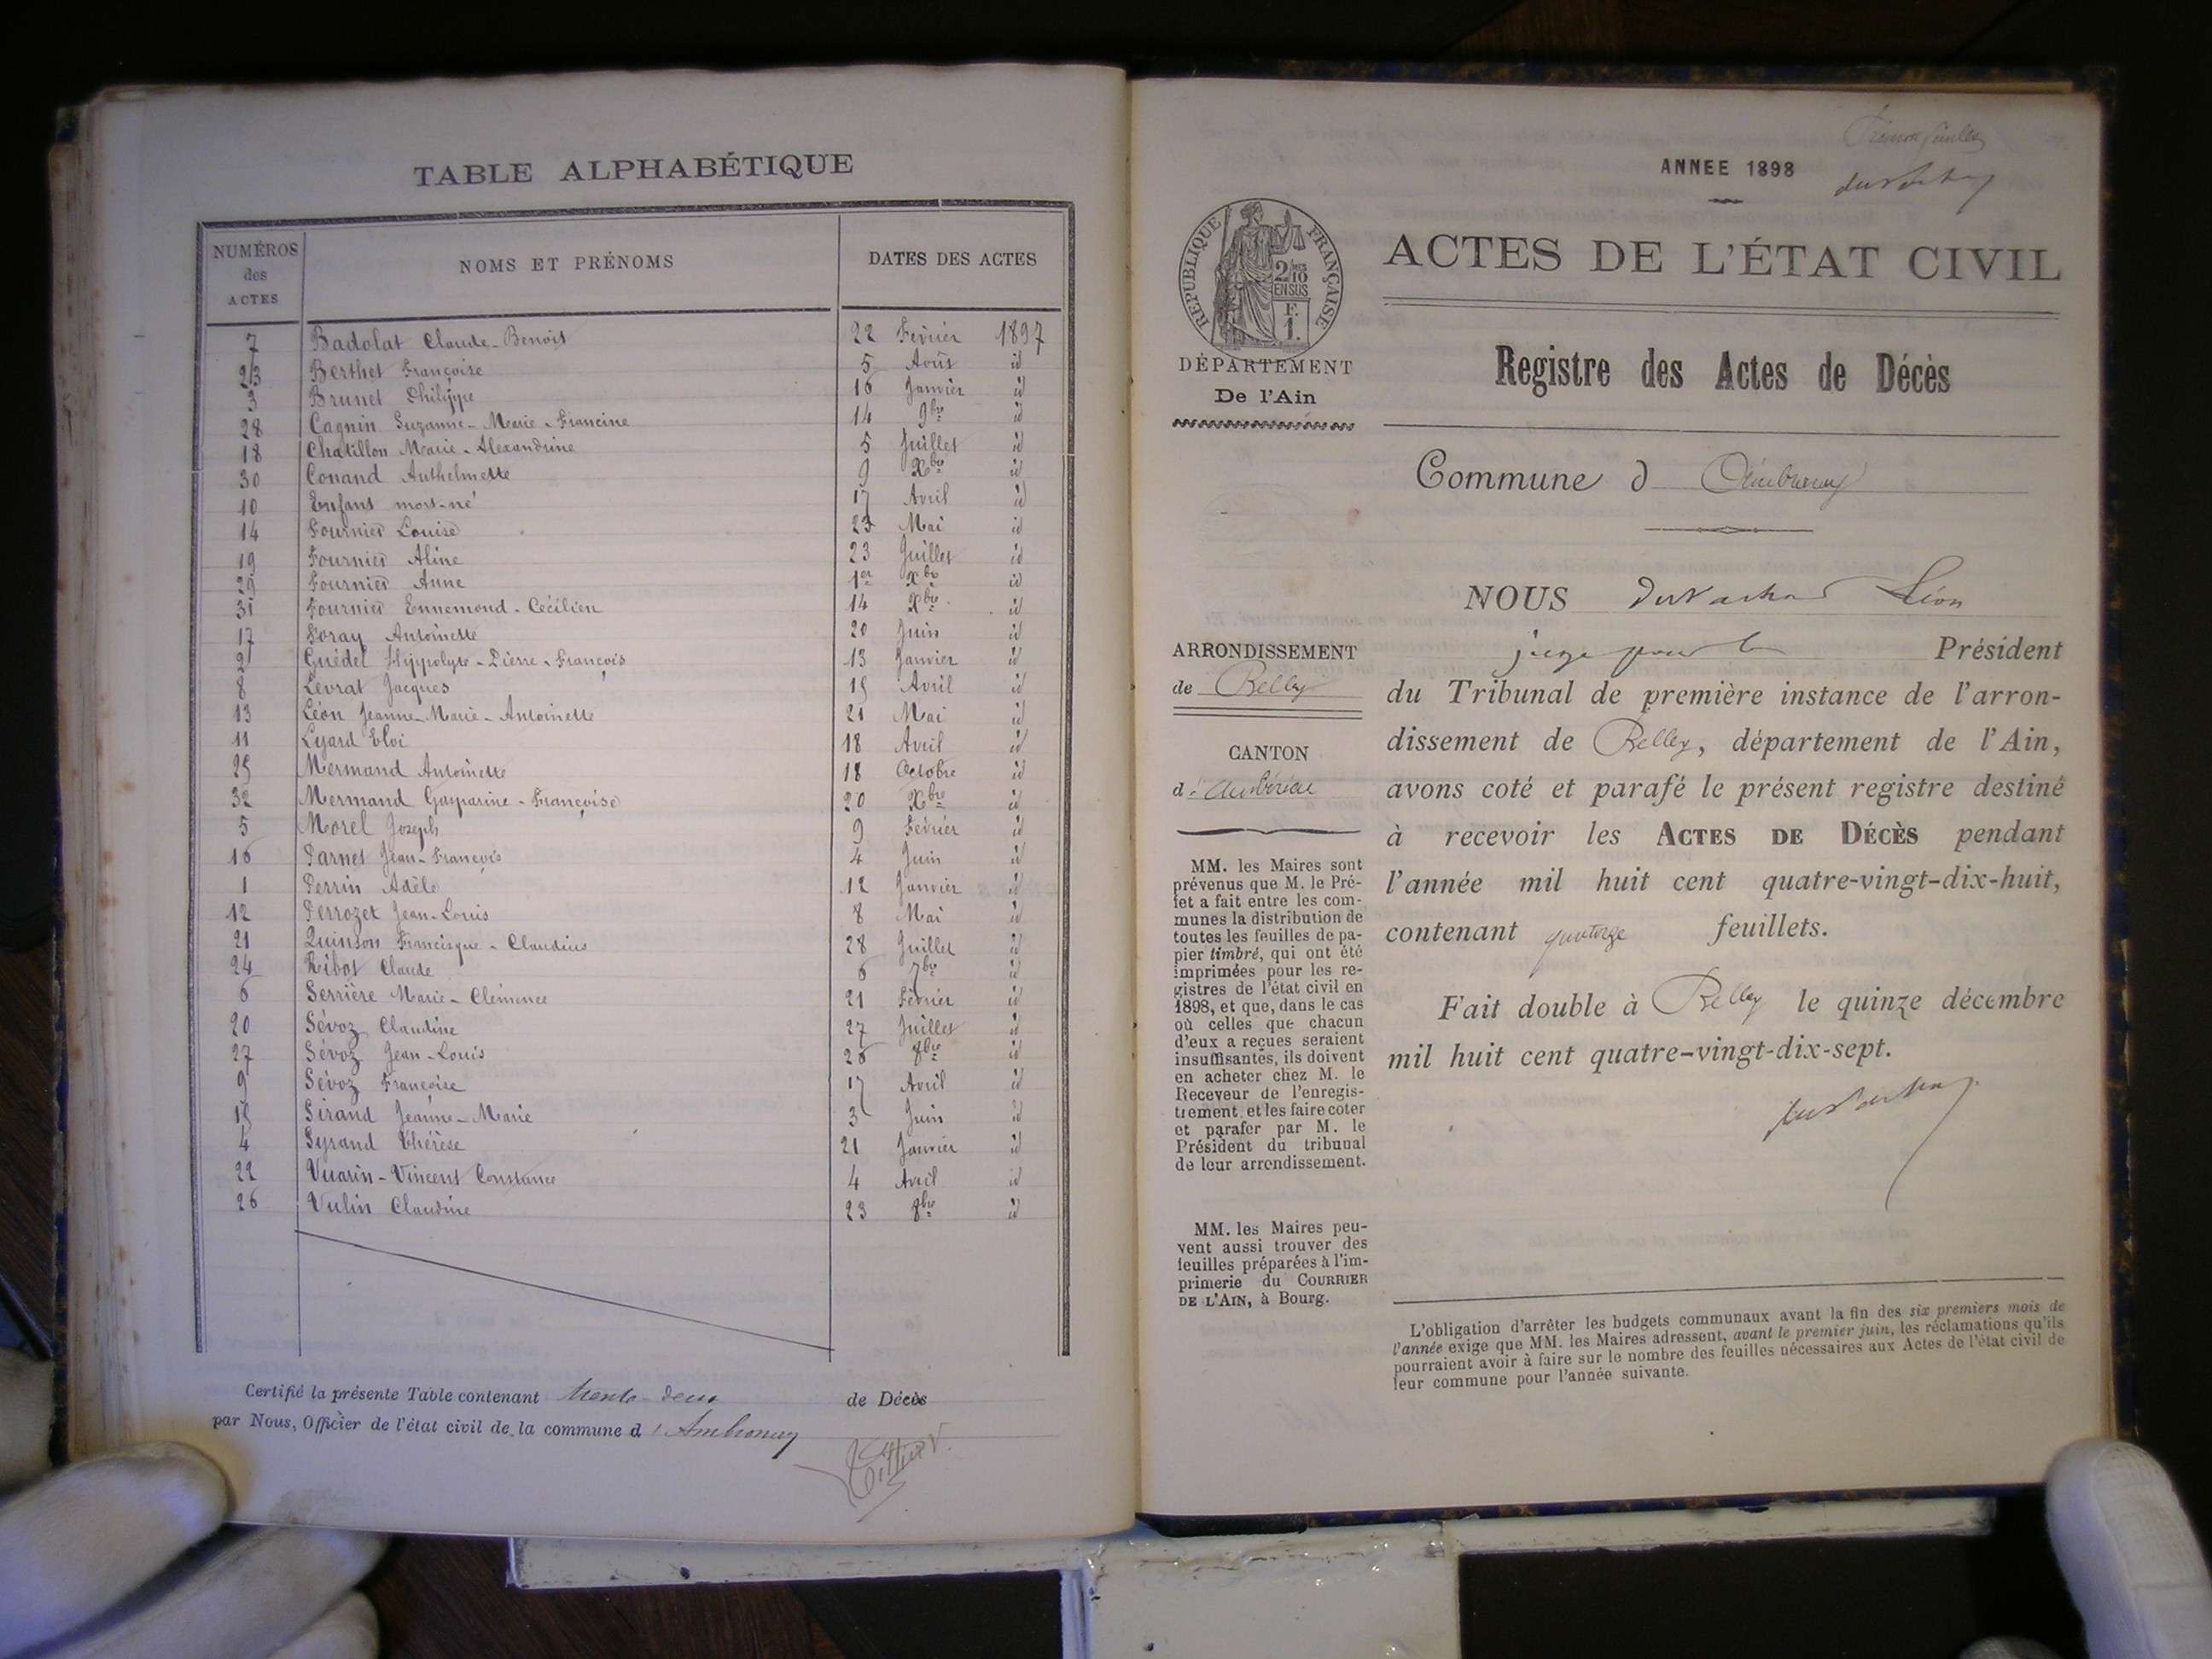 TABLE ALPHABÉTIQUE
NUMÉROS des ACTES | NOMS ET PRÉNOMS | DATES DES ACTES
7 Badolat Claude-Benoit 22 Février 1897
23 Berthet Françoise 5 Août id
3 Brunet Philippe 16 Janvier id
28 Cagnin Suzanne-Marie-Francine 14 9bre id
18 Chatillon Marie-Alexandrine 5 Juillet id
30 Conand Anthelmette 9 Xbre id
10 Enfant mort-né 17 Avril id
14 Fournier Louise 23 Mai id
19 Fournier Aline 23 Juillet id
29 Fournier Anne 1er Xbre id
31 Fournier Ennemond-Cécilien 14 Xbre id
17 Foray Antoinette 20 Juin id
2 Guédel Hippolyte-Pierre-François 13 Janvier id
8 Levrat Jacques 15 Avril id
13 Léon Jeanne-Marie-Antoinette 21 Mai id
11 Lyard Eloi 18 Avril id
25 Mermand Antoinette 18 Octobre id
32 Mermand Gasparine-Françoise 20 Xbre id
5 Morel Joseph 9 Février id
16 Parnet Jean-François 4 Juin id
1 Perrin Adèle 12 Janvier id
12 Perrozet Jean-Louis 8 Mai id
21 Quinson Francisque-Claudius 28 Juillet id
24 Ribot Claude 6 7bre id
6 Serrière Marie-Clémence 21 Février id
20 Sévoz Claudine 27 Juillet id
27 Sévoz Jean-Louis 26 8bre id
9 Sévoz Françoise 17 Avril id
15 Sirand Jeanne-Marie 3 Juin id
4 Syrand Thérèse 21 Janvier id
22 Vuarin-Vincent Constance 4 Avril id
26 Vulin Claudine 23 8bre id
Certifié la présente Table contenant trente-deux de Décès
par Nous, Officier de l'état civil de la commune d'Ambronay
ANNEE 1898
RÉPUBLIQUE FRANÇAISE
2/10 EN SUS
F. 1.
ACTES DE L'ÉTAT CIVIL
DÉPARTEMENT
De l'Ain
Registre des Actes de Décès
Commune d Ambronay
NOUS Léon
juge pour le Président
du Tribunal de première instance de l'arron-
dissement de Belley, département de l'Ain,
avons coté et parafé le présent registre destiné
à recevoir les ACTES DE DÉCÈS pendant
l'année mil huit cent quatre-vingt-dix-huit,
contenant quatorze feuillets.
Fait double à Belley le quinze décembre
mil huit cent quatre-vingt-dix-sept.
ARRONDISSEMENT
de Belley
CANTON
d'Ambérieu
MM. les Maires sont
prévenus que M. le Pré-
fet a fait entre les com-
munes la distribution de
toutes les feuilles de pa-
pier timbré, qui ont été
imprimées pour les re-
gistres de l'état civil en
1898, et que, dans le cas
où celles que chacun
d'eux a reçues seraient
insuffisantes, ils doivent
en acheter chez M. le
Receveur de l'enregis-
trement, et les faire coter
et parafer par M. le
Président du tribunal
de leur arrondissement.
MM. les Maires peu-
vent aussi trouver des
feuilles préparées à l'im-
primerie du COURRIER
DE L'AIN, à Bourg.
L'obligation d'arrêter les budgets communaux avant la fin des six premiers mois de
l'année exige que MM. les Maires adressent, avant le premier juin, les réclamations qu'ils
pourraient avoir à faire sur le nombre des feuilles nécessaires aux Actes de l'état civil de
leur commune pour l'année suivante.